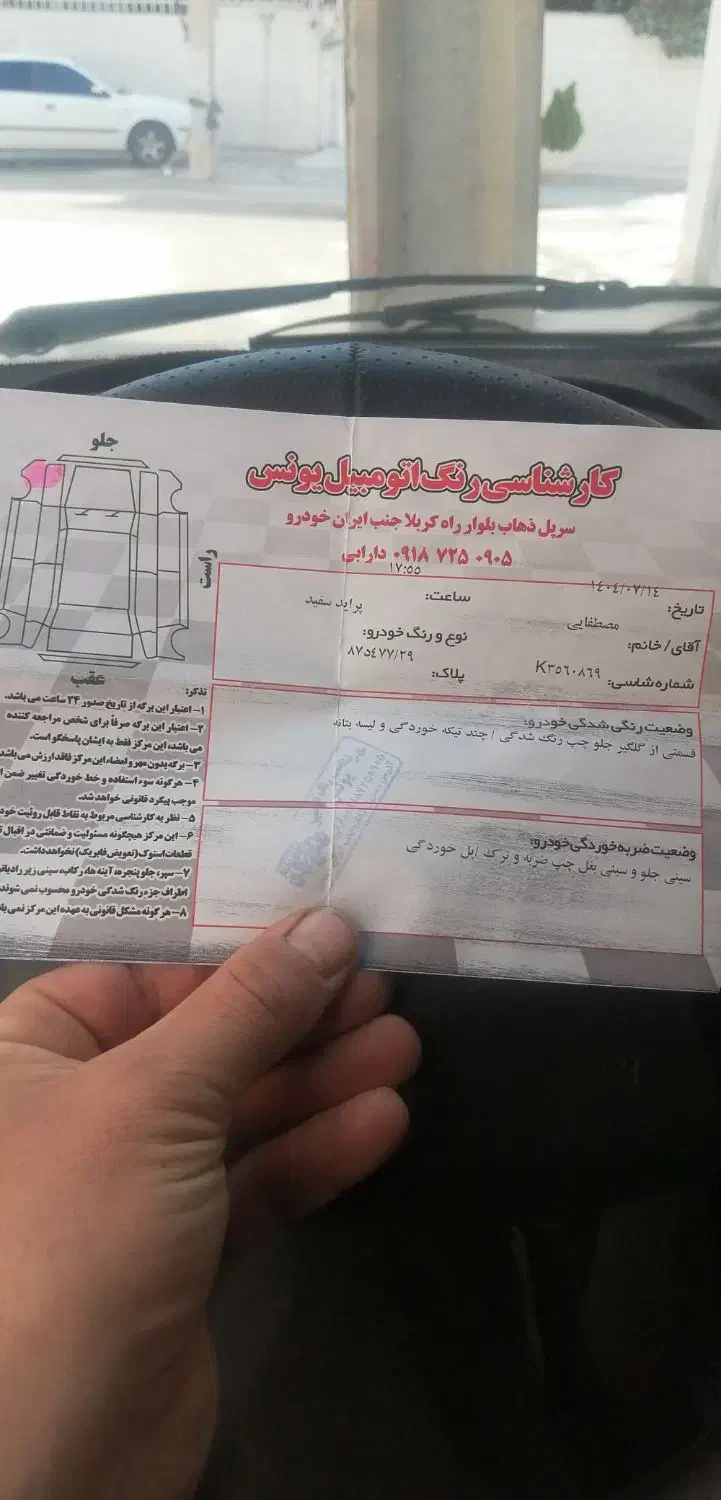 کارشناسی رنگ اتومبیل یونس
سرپل ذهاب بلوار راه کربلا جنب ایران خودرو
۰۹۱۸ ۷۲۵ ۰۹۰۵ دارابی
تاریخ: ۱۴۰۴/۰۷/۱۴
ساعت: ۱۷:۵۵
آقای/خانم: مصطفایی
نوع و رنگ خودرو: پراید سفید
شماره شاسی: K۳۵۶۰۸۶۹
پلاک: ۸۷د۴۷۷/۲۹
وضعیت رنگی شدگی خودرو:
قسمتی از گلگیر جلو چپ رنگ شدگی / چند تیکه خوردگی و لیسه بتانه
وضعیت ضربه خوردگی خودرو:
سینی جلو و سینی بغل چپ ضربه و ترک /پل خوردگی
جلو
راست
عقب
تذکر:
۱- اعتبار این برگه از تاریخ صدور ۲۴ ساعت می باشد.
۲- اعتبار این برگه صرفاً برای شخص مراجعه کننده
می باشد، این مرکز فقط به ایشان پاسخگو است.
۳- برگه بدون مهر و امضاء این مرکز فاقد ارزش می باشد
۴- هرگونه سوء استفاده و خط خوردگی تغییر ضمن
موجب پیگرد قانونی خواهد شد.
۵- نظر به کارشناسی مربوط به نقاط قابل رویت
۶- این مرکز هیچگونه مسئولیت و ضمانتی در
قطعات استوک (تعویض فابریک) نخواهد داشت.
۷- سپر، جلو پنجره، آینه ها، رکاب، سینی زیر
اطراف جزء رنگ شدگی خودرو محسوب نمی شوند
۸- هرگونه مشکل قانونی به عهده این مرکز نمی